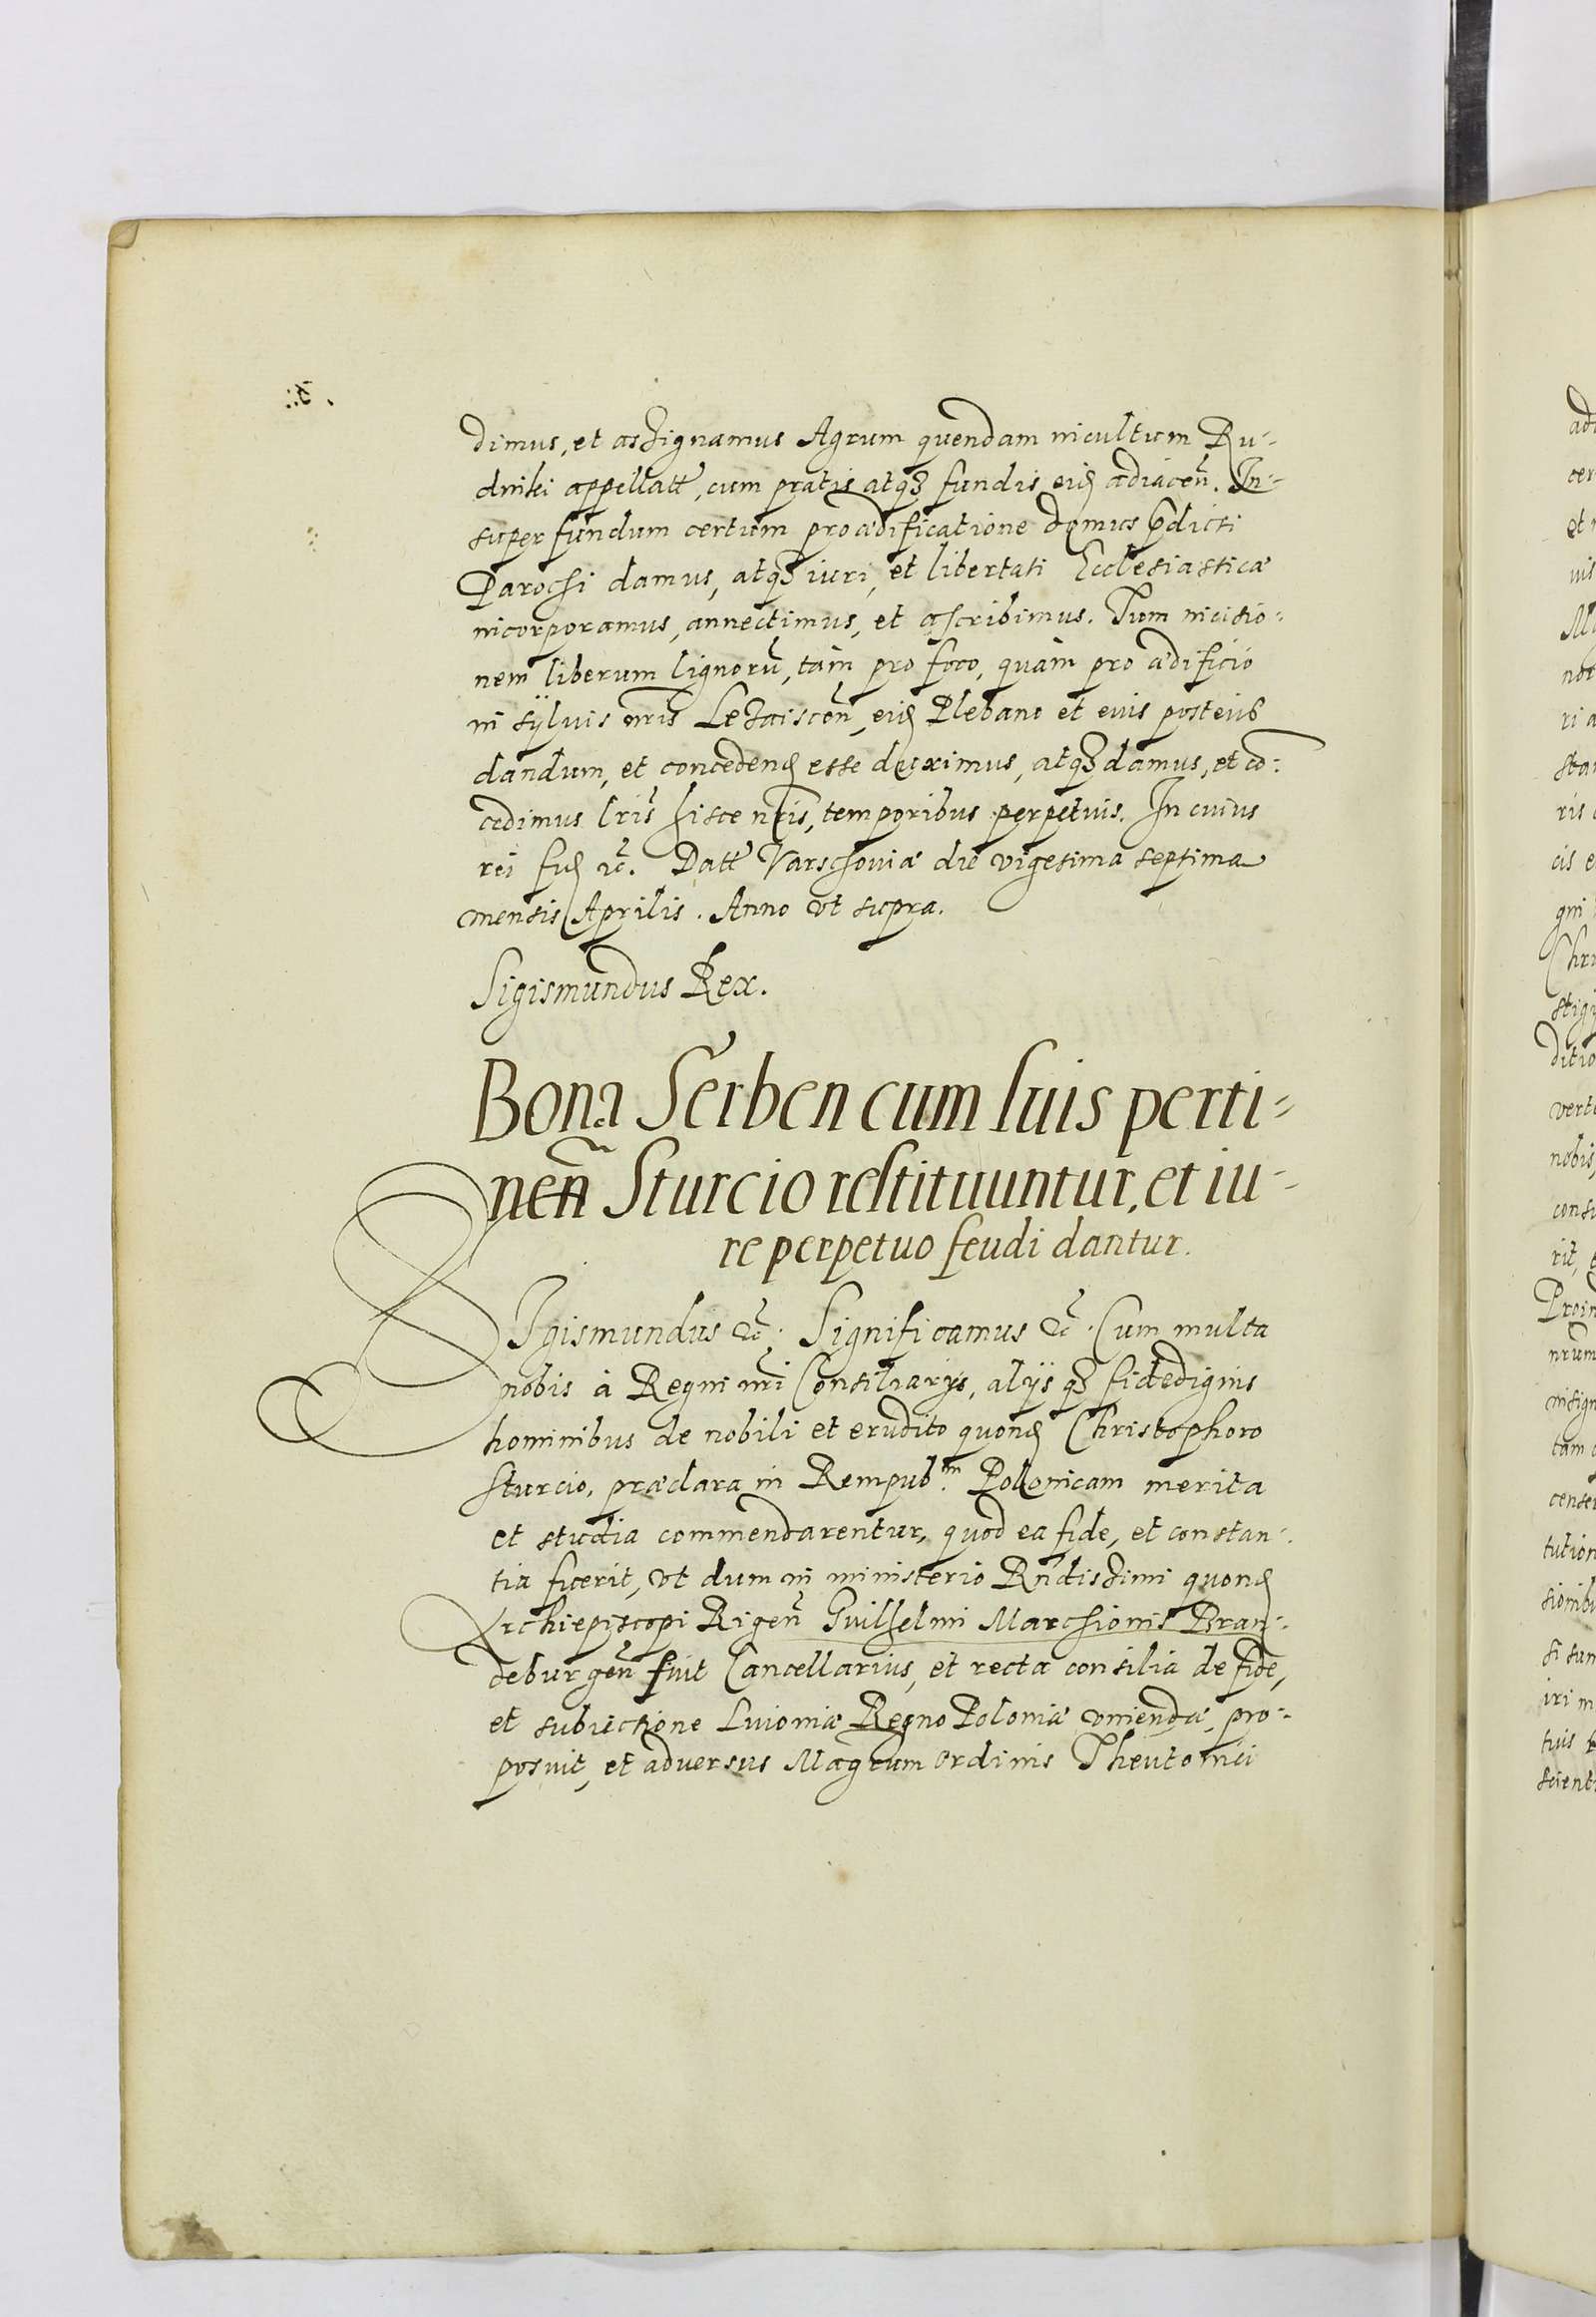 dimus, et assignamus Agrum quendam incultum Ru-
dniki appellatt, cum pratis atq3 fundis eiꝰ adiacen̄. In-
super fundum certum pro ædificatione domus p̄dicti
Parochi damus, atq3 iuri, et libertati Ecclesiasticæ
incorporamus, annectimus, et ascribimus. Tum incisio-
nem liberum lignorū, tàm pro foco, quàm pro ædificio
in sÿluis nr̄is eiꝰ Plebano et euis posterib
dandum, et concedenꝰ esse duximus, atq3 damus, et cō-
cedimus lr̄is hisce nr̄is, temporibus perpetuis. In cuius
rei fiꝰ &c̄. Datt Varschouiæ die vigesima septima
mensis Aprilis. Anno vt supra.
Sigismundus Rex.
Bona Serben cum suis perti-
nen̄ Sturcio restituuntur, et iu-
re perpetuo feudi dantur.
SIgismundus &c̄. Significamus &c̄. Cum multa
nobis à Regni nr̄i Consiliarijs, alijsq3 fidedignis
hominibus de nobili et erudito quonꝰ Christophoro
Sturcio, præclara in Rempub.m Polonicam merita
et studia commendarentur, quod ea fide, et constan-
tia fuerit, vt dum in ministerio Rn̄dissimi quonꝰ
Archiepiscopi Rigen̄ Guilhelmi Marchionis Bran-
deburgen̄ fuit Cancellarius, et recta consilia de fide,
et subiectione Liuoniæ Regno Poloniæ vniendæ, pro-
posuit, et aduersus Mag̃rum ordinis Theutonici